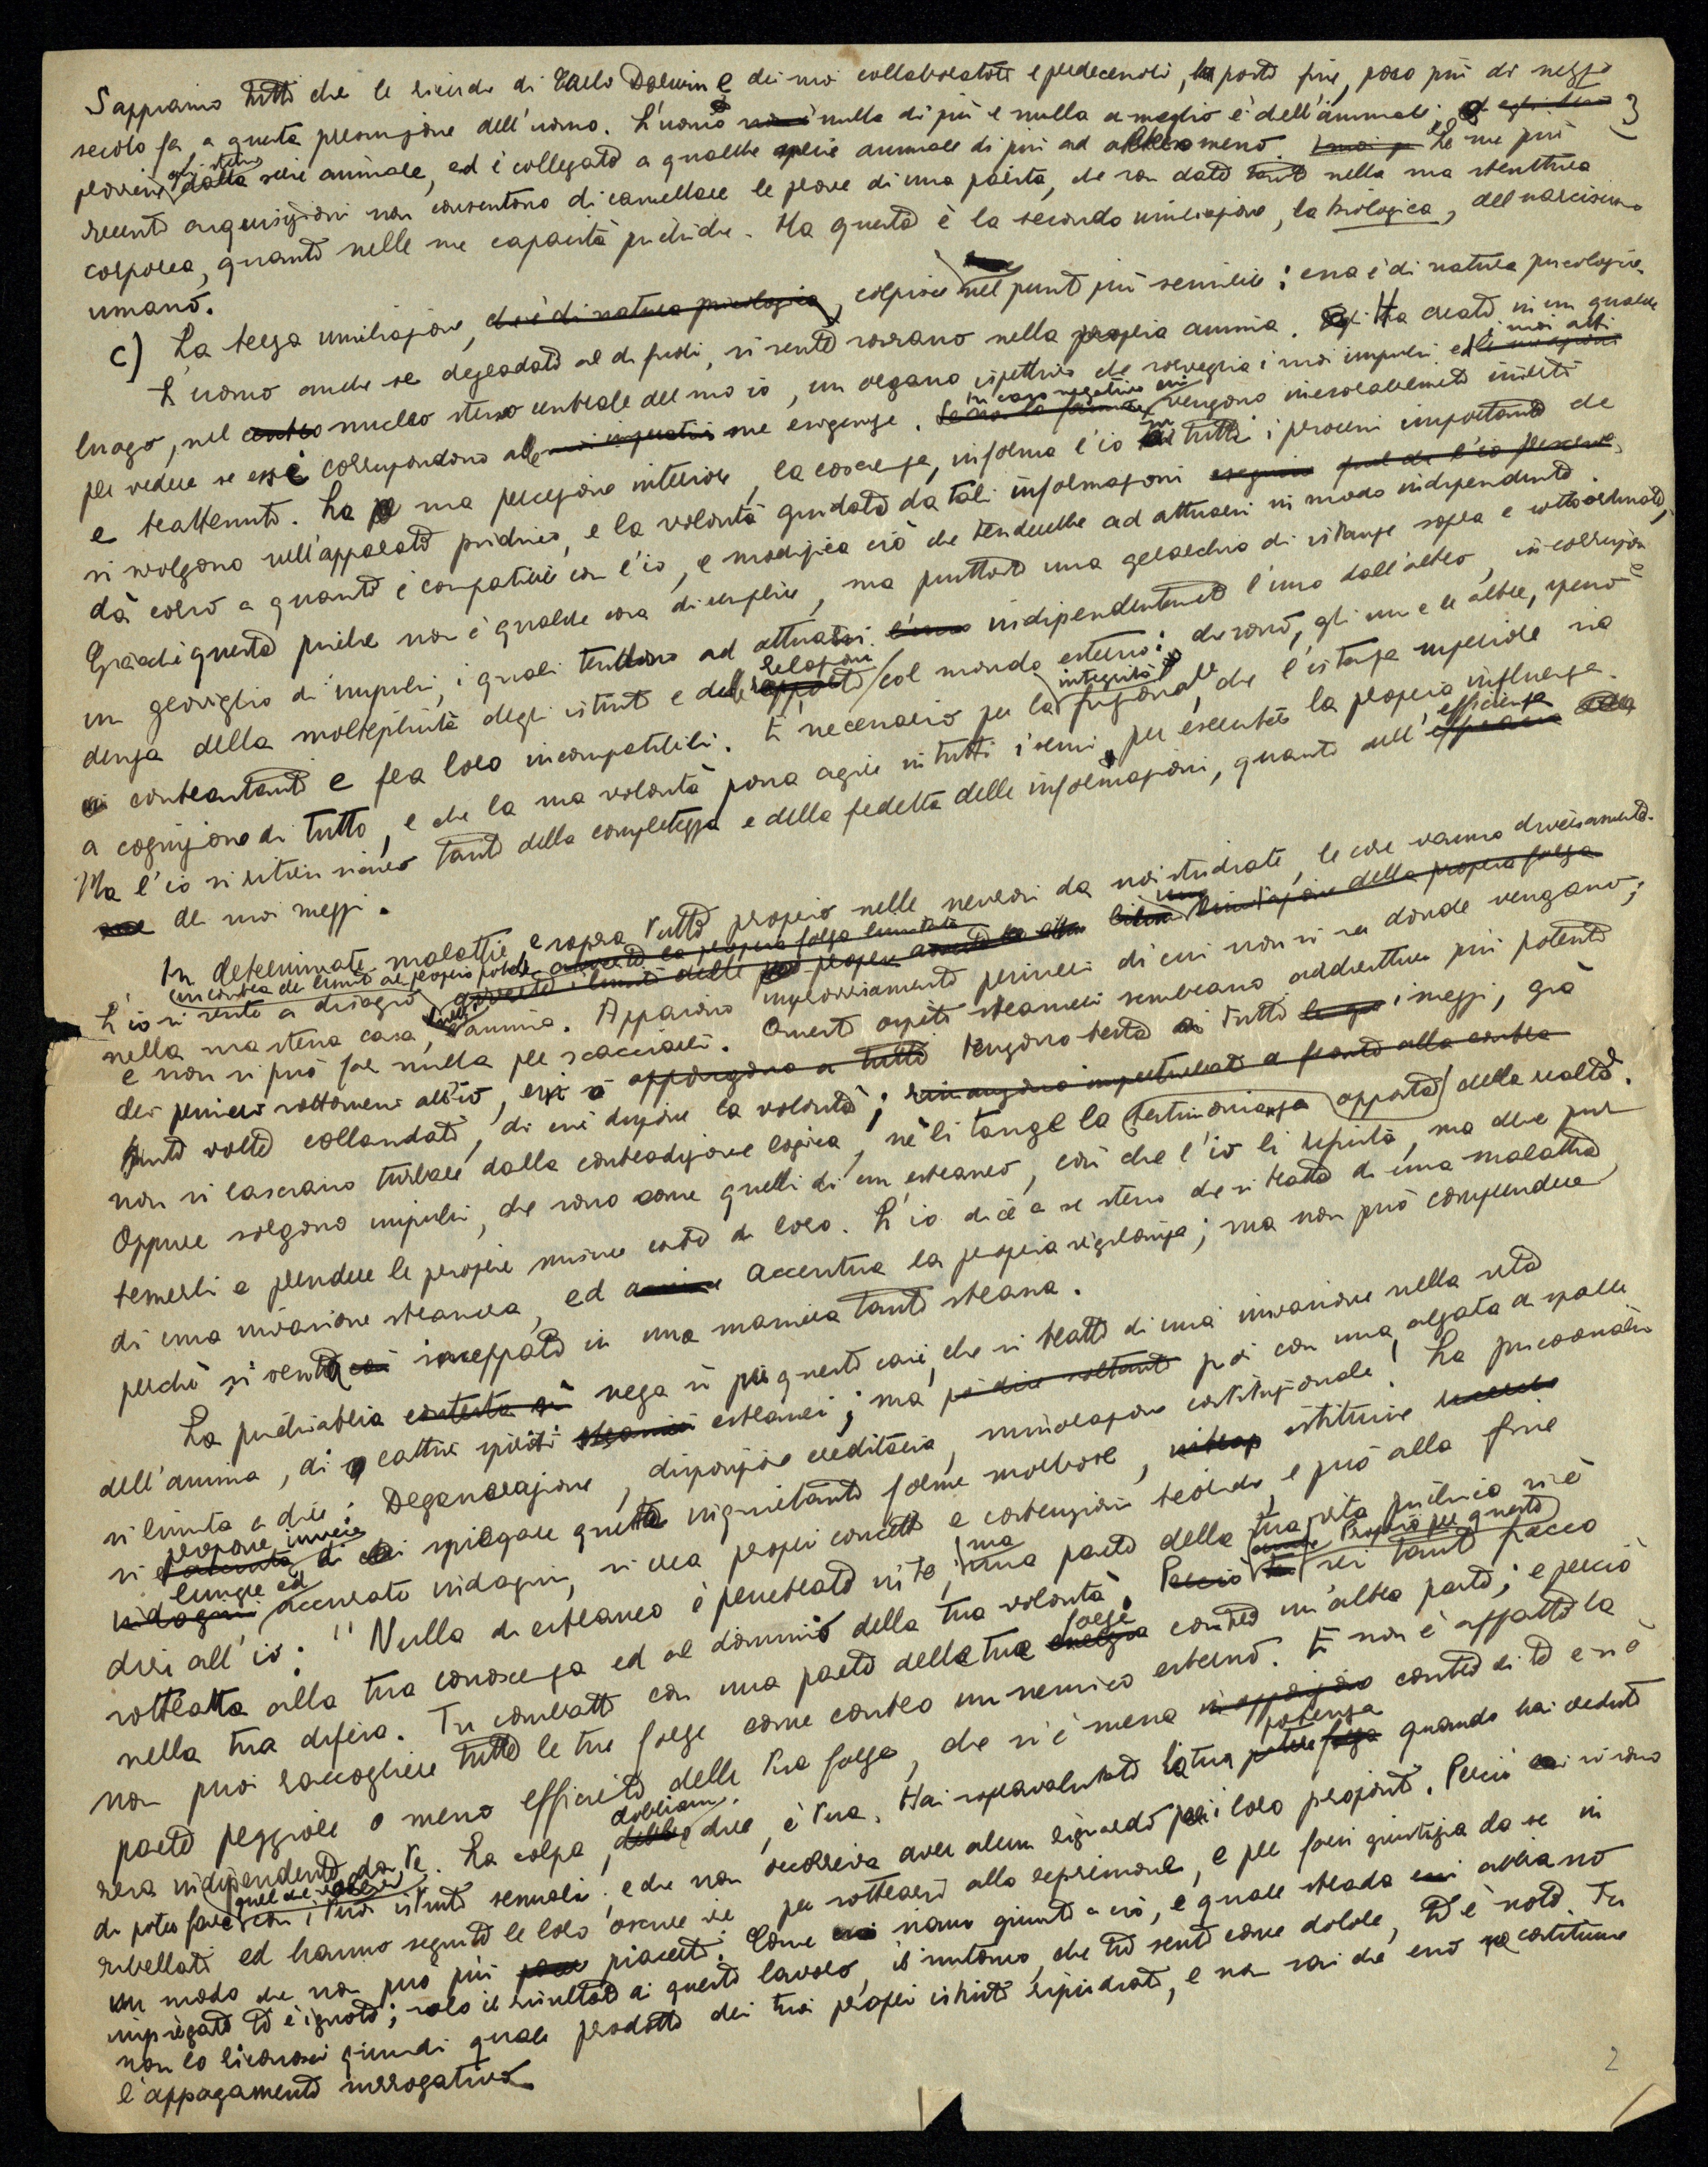 Sappiamo tutti che le ricerche di Carlo Darwin e dei suoi collaboratori e predecessori, ha posto fine, poco più di mezzo
3
secolo fa, a questa presunzione dell'uomo. L'uomo nulla di più e nulla di meglio è dell'animale; egli stesso
proviene dalla serie animale, ed è collegato a qualche specie animale di più ad altra meno. Le sue più
recenti acquisizioni non consentono di cancellare le prove di una parità, che son date tanto nella sua struttura
corporea, quanto nelle sue capacità psichiche. Ma questa è la seconda umiliazione, la biologica, del narcisismo
umano.
c) La terza umiliazione, che è di natura psicologica, colpisce nel punto più sensibile: essa è di natura psicologica.
L'uomo anche se degradato al di fuori, si sente sovrano nella propria anima. Ha creato in un qualche
luogo, nel nucleo stesso centrale del suo io, un organo ispettivo che sorveglia i suoi impulsi ed i suoi atti
per vedere se essi corrispondono alle sue esigenze. In caso negativo essi vengono inesorabilmente inibiti
e trattenuti. La sua percezione interiore, la coscienza, informa l'io su tutti i processi importanti che
si svolgono nell'apparato psichico, e la volontà guidata da tali informazioni
dà corso a quanto è compatibile con l'io, e modifica ciò che tenderebbe ad attuarsi in modo indipendente.
Giacché questa psiche non è qualche cosa di semplice, ma piuttosto una gerarchia di istanze sopra e sottoordinate,
un groviglio di impulsi, i quali tendono ad attuarsi indipendentemente l'uno dall'altro, in corrispon-
denza della molteplicità degli istinti e delle relazioni col mondo esterno; che sono, gli uni e le altre, spesso
contrastanti e fra loro incompatibili. È necessario per la integrità funzionale che l'istanza superiore sia
a cognizione di tutto, e che la sua volontà possa agire in tutti i sensi per esercitare la propria influenza.
Ma l'io si ritien sicuro tanto della completezza e della fedeltà delle informazioni, quanto dell'efficienza
dei suoi mezzi.
In determinate malattie, e sopra tutto proprio nelle nevrosi da noi studiate, le cose vanno diversamente.
L'io si sente a disagio, incontra dei limiti al proprio potere
nella sua stessa casa, nell'anima. Appaiono improvvisamente pensieri di cui non si sa donde vengano;
e non si può far nulla per scacciarli. Questi ospiti stranieri sembrano addirittura più potenti
dei pensieri sottomessi all'io, essi tengono testa a tutti i mezzi, già
tante volte collaudati, di cui dispone la volontà;
non si lasciano turbare dalla contradizione logica, nè li tange la testimonianza opposta della realtà.
Oppure sorgono impulsi, che sono come quelli di un estraneo, così che l'io li rifiuta, ma deve pur
temerli e prendere le proprie misure contro di loro. L'io dice a se stesso che si tratta di una malattia,
di una invasione straniera, ed accentua la propria vigilanza; ma non può comprendere
perchè si senta inceppato in una maniera tanto strana.
La psichiatria nega sì per questi casi, che si tratti di una invasione nella vita
dell'anima, di cattivi spiriti estranei; ma poi con una alzata di spalle
si limita a dire: Degenerazione, disposizione ereditaria, minorazione costituzionale! La psicoanalisi
si propone invece di spiegare queste inquietanti forme morbose, istituisce
lunghe ed accurate indagini, si crea propri concetti e costruzioni teoriche, e può alla fine
dire all'io: "Nulla di estraneo è penetrato in te, ma una parte della tua vita psichica si è
sottratta alla tua conoscenza ed al dominio della tua volontà. Proprio per questo sei tanto fiacco
nella tua difesa. Tu combatti con una parte delle tue forze contro un'altra parte; e perciò
non puoi raccogliere tutte le tue forze come contro un nemico esterno. E non è affatto la
parte peggiore o meno efficiente delle tue forze, che si è messa contro di te e si è
resa indipendente da te. La colpa, dobbiamo dire, è tua. Hai sopravalutato la tua potenza quando hai creduto
di poter fare quel che volevi con i tuoi istinti sessuali; e che non occorreva aver alcun riguardo per i loro propositi. Perciò si sono
ribellati ed hanno seguito le loro oscure vie per sottrarsi alla repressione, e per farsi giustizia da se in
un modo che non può più piacerti. Come siano giunti a ciò, e quale strada abbiano
impiegato ti è ignoto; solo il risultato di questo lavoro, il sintomo, che tu senti come dolore, ti è noto. Tu
non lo riconosci quindi quale prodotto dei tuoi propri istinti ripudiati, e non sai che esso ne costituisce
l'appagamento surrogativo.
2